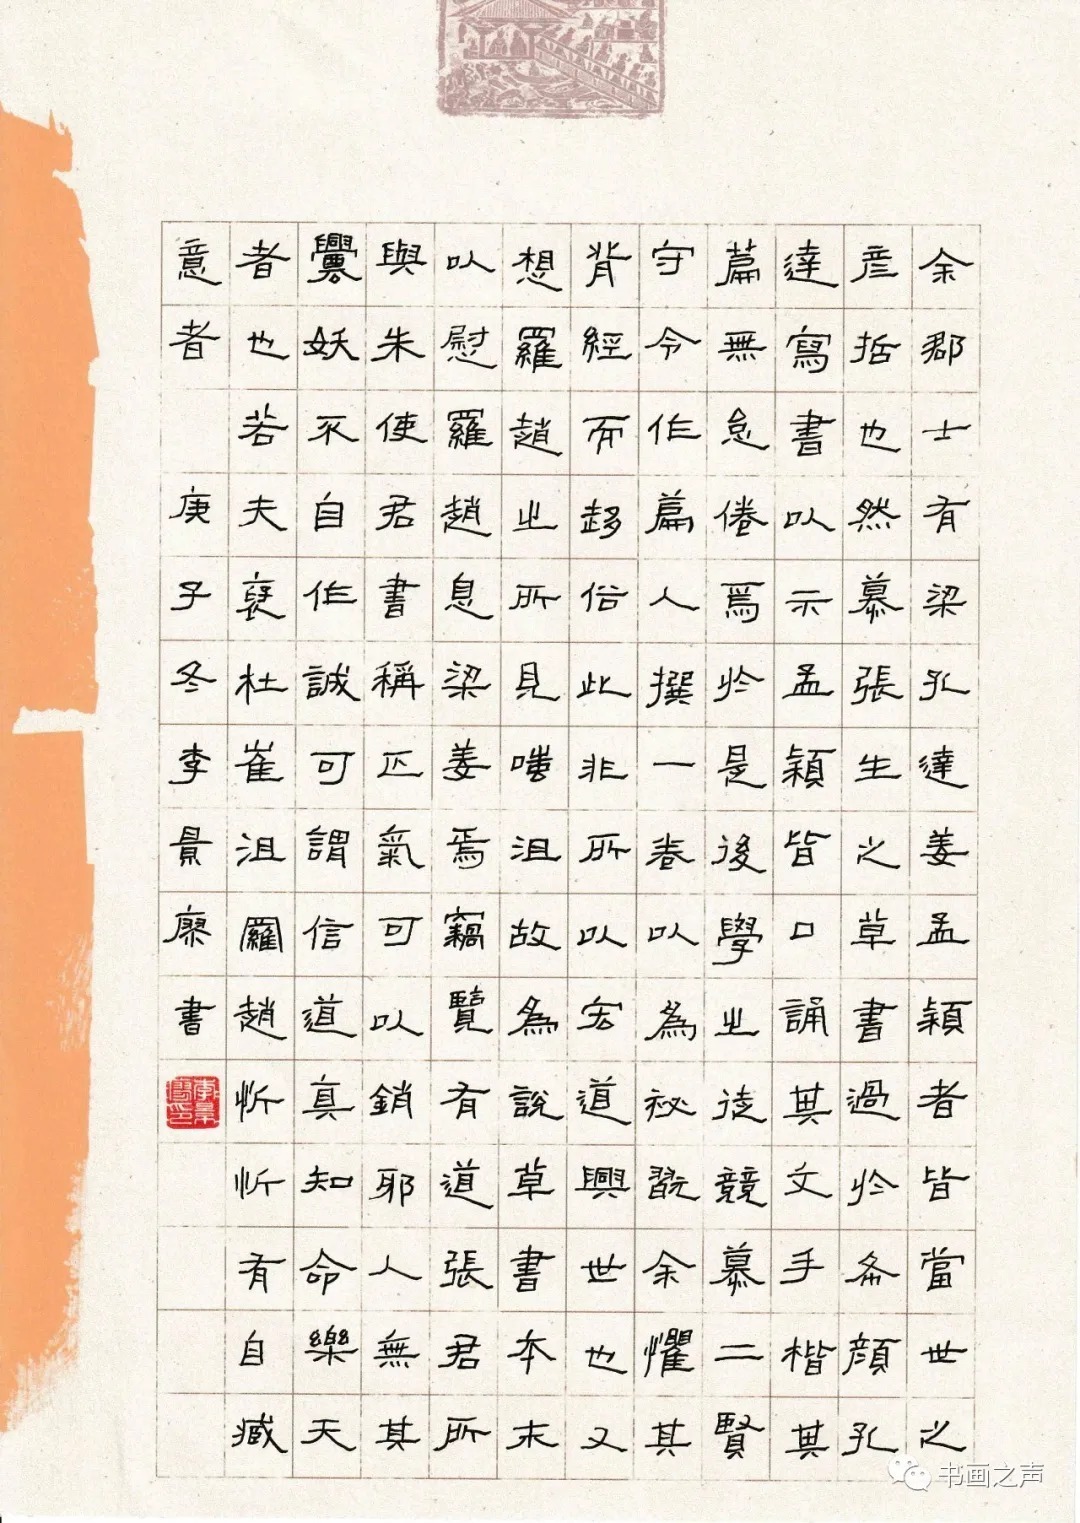 余郡士有梁孔達姜孟穎者皆當世之
彥括也然慕張生之草書過於希顔孔
達寫書以示孟穎皆口誦其文手楷其
篇無怠倦焉於是後學之徒競慕二賢
守令作篇人撰一卷以為祕翫余懼其
背經而趍俗此非所以宏道興世也又
想羅趙之所見嗤沮故為說草書本末
以慰羅趙息梁姜焉竊覽有道張君所
與朱使君書稱正氣可以銷邪人無其
釁妖不自作誠可謂信道真知命樂天
者也若夫褒杜崔沮羅趙忻忻有自臧
意者 庚子冬李景廖書
书画之声